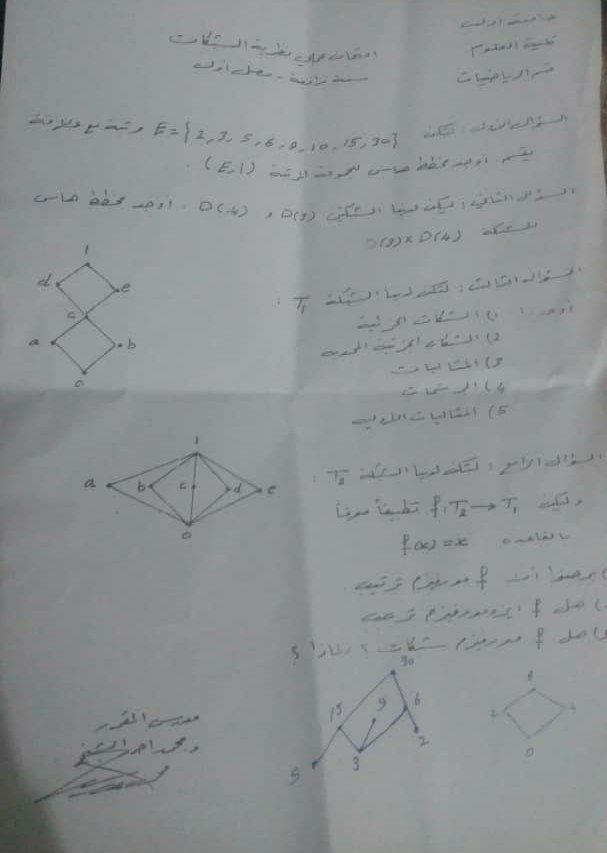 كلية العلوم
قسم الرياضيات
امتحان عملي نظرية الشبكات
سنة رابعة - فصل أول
السؤال الأول: لتكن E={2,3,5,6,9,10,15,30} مرتبة مع علاقة
يقسم. أوجد مخطط هاس للمجموعة المرتبة (E,/).
السؤال الثاني: ليكن لدينا الشبكتين D(9) و D(4). أوجد مخطط هاس
للشبكة D(9)×D(4)
السؤال الثالث: لتكن لدينا الشبكة T₁:
أوجد:
1) الشبكات الجزئية
2) الشبكات الجزئية المحدبة
3) المثاليات
4) المرشحات
5) المثاليات الأولية
1
d
e
c
a
b
0
السؤال الرابع: لتكن لدينا الشبكة T₂:
وليكن f:T₂→T₁ تطبيقاً معرفاً
بالقاعدة f(x)=x
أن f مورفيزم ترتيب.
هل f ايزومورفيزم ترتيب
هل f مورفيزم شبكات؟ ولماذا؟
1
a
b
c
d
e
0
30
15
9
6
5
3
2
مدرس المقرر